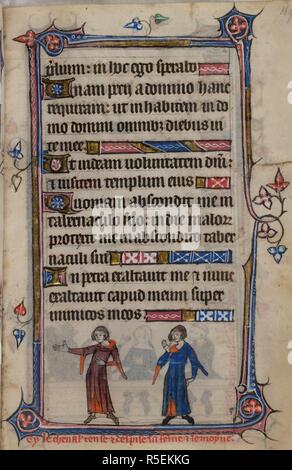 prelium: in hoc ego sperabo
Unam peti a domino hanc
requiram: ut inhabitem in do
mo domini omnibus diebus ui
te mee
Ut uideam uoluntatem dni:
et uisitem templum eius
Quoniam abscondit me in
tabernaclo suo: in die malor
protexit me in abscondito taber
naculi sui
In petra exaltauit me et nunc
exaltauit capud meum super
inimicos meos
alamy - R5EKKG